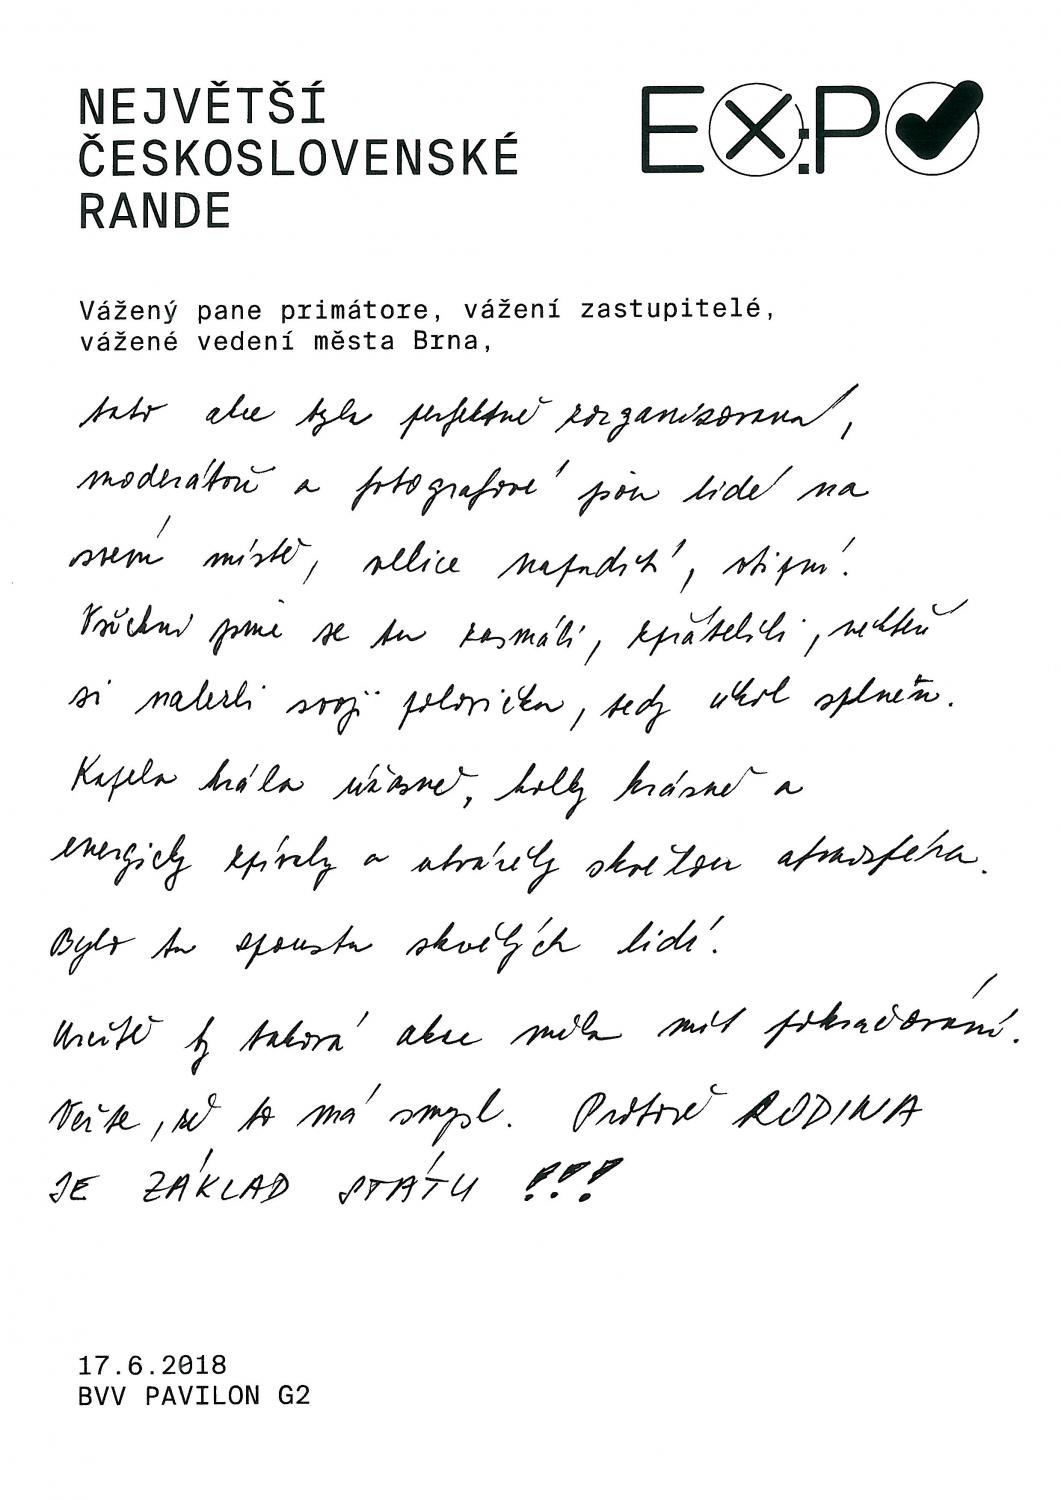 NEJVĚTŠÍ
ČESKOSLOVENSKÉ
RANDE
EX:PO
Vážený pane primátore, vážení zastupitelé,
vážené vedení města Brna,
tato akce byla perfektně zorganizovaná,
moderátoři a fotografové jsou lidé na
svém místě, velice nápadití, vtipní.
Všichni jsme se tu zasmáli, zpřátelili, někteří
si nalezli svoji polovičku, tedy úkol splněn.
Kapela hrála úžasně, holky krásně a
energicky zpívaly a utvářely skvělou atmosféru.
Bylo tu spousta skvělých lidí.
Určitě by taková akce měla mít pokračování.
Věřte, že to má smysl. Protože RODINA
JE ZÁKLAD STÁTU !!!
17.6.2018
BVV PAVILON G2